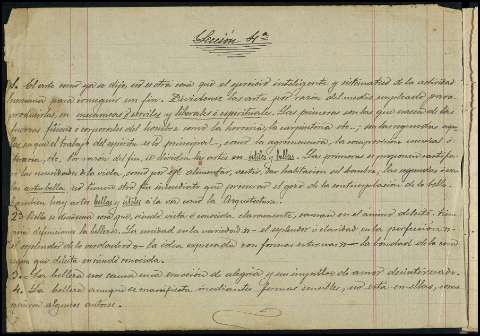 Lección 4ª
1. El arte como ya se dijo, no es otra cosa que el ejercicio inteligente y sistemático de la actividad
humana para conseguir un fin. Divídense las artes por razón del medio empleado para
producirlas, en mecánicas ó serviles y liberales ó espirituales. Las primeras son las que nacen de las
fuerzas físicas ó corporales del hombre como la herrería, la carpintería etc.; en las segundas apa-
rece que el trabajo del espíritu es lo principal, como la agrimensura, la composición musical ó
literaria, &c. Por razón del fin, se dividen las artes en útiles y bellas. Las primeras se proponen satisfa-
cer las necesidades de la vida, como por ejl. alimentar, vestir, dar habitación al hombre, las segundas ó sean
las artes bellas no tienen otro fin inmediato que procurar el goce de la contemplación de lo bello.
También hay artes bellas y útiles á la vez como la Arquitectura.
2. bello se denomina todo que, siendo vista ó conocida claramente, causan en el ánimo deleite.
definiciones la belleza. La unidad en la variedad n— el esplendor o claridad en la perfección n—
el esplendor de lo verdadero n— la idea expresada con formas externas n— la bondad de la cosa
que deleita en siendo conocida.
3.- La belleza nos causa una emoción de alegría y un impulso de amor desinteresado.
4. La belleza aunque se manifiesta mediante formas sensibles, no está en ellas, como
algunos autores.